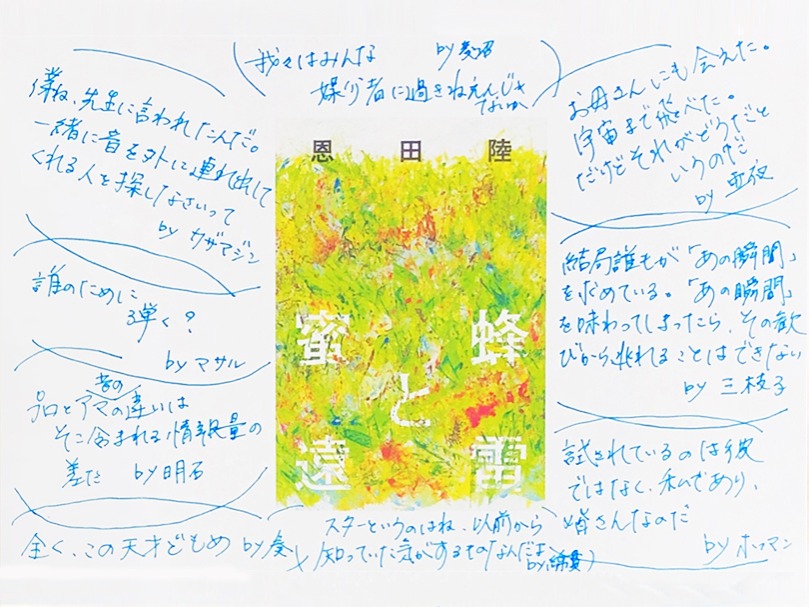 我々はみんな by 菱沼
媒介者に過ぎねえんじゃ
ないか
僕ね、先生に言われたんだ。
一緒に音を外に連れ出して
くれる人を探しなさいって
by カザマジン
誰のために
弾く?
by マサル
音の
プロとアマの違いは
そこ含まれる情報量の
差だ by 明石
全く、この天才どもめ by 奏
恩田陸
蜜蜂と遠雷
スターというのはね、以前から
知っていた気がするものなんだよ
by
お母さんにも会えた。
宇宙まで飛べた。
だけどそれがどうだと
いうのだ
by 亜夜
結局誰もが「あの瞬間」
を求めている。「あの瞬間」
を味わってしまったら、その歓
びから逃れることはできない
by 三枝子
試されているのは彼
ではなく、私であり、
皆さんなのだ
by ホフマン